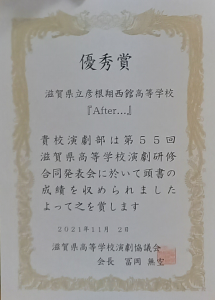 優秀賞
滋賀県立彦根翔西館高等学校
『After…』
貴校演劇部は第55回
滋賀県高等学校演劇研修
合同発表会に於いて頭書の
成績を収められました
よって之を賞します
2021年11月 2日
滋賀県高等学校演劇協議会
会長 冨岡 無空